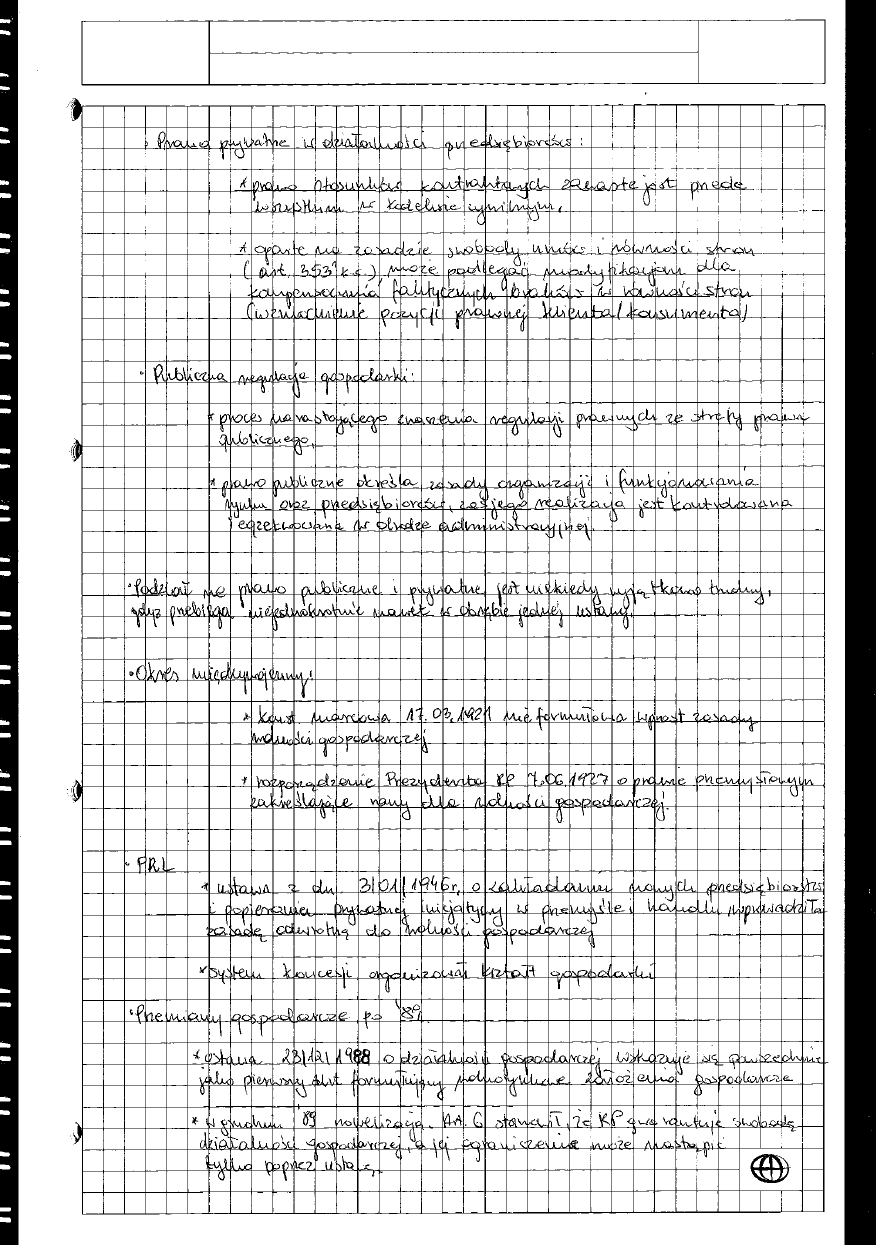 • Prawo prywatne w działalności przedsiębiorców:
* prawo stosunków kontraktowych zawarte jest przede
wszystkim w kodeksie cywilnym,
* oparte na zasadzie swobody umów i równości stron
(art. 353¹ k.c.), może podlegać modyfikacjom dla
kompensowania faktycznych braków w równości stron
(wzmocnienie pozycji prawnej klienta/konsumenta)
• Publiczna regulacja gospodarki:
* proces narastającego znaczenia regulacji prawnych ze strefy prawa
publicznego,
* prawo publiczne określa zasady organizacji i funkcjonowania
rynku oraz przedsiębiorców, zaś jego realizacja jest kontrolowana
i egzekwowana w drodze administracyjnej.
• Podział na prawo publiczne i prywatne jest niekiedy wyjątkowo trudny,
gdyż przebiega niejednokrotnie nawet w obrębie jednej ustawy.
• Okres międzywojenny:
* konst. marcowa 17.03.1921 nie formułowa wprost zasady
wolności gospodarczej
* rozporządzenie Prezydenta RP 7.06.1927 o prawie przemysłowym
zakreślające ramy dla wolności gospodarczej.
• PRL
* ustawa z dn. 3/01/1946r. o zakładaniu nowych przedsiębiorstw
i popierania prywatnej inicjatywy w przemyśle i handlu wprowadziła
zasadę odwrotną do wolności gospodarczej
* system koncesji organizował kształt gospodarki
• Przemiany gospodarcze po '89
* ustawa 23/12/1988 o działalności gospodarczej wskazuje się powszechnie
jako pierwszy akt formułujący wolnorynkowe założenia gospodarcze
* w grudniu '89 nowelizacja. Art. 6 stanowił, że RP gwarantuje swobodę
działalności gospodarczej, a jej ograniczenie może nastąpić
tylko poprzez ustawę.